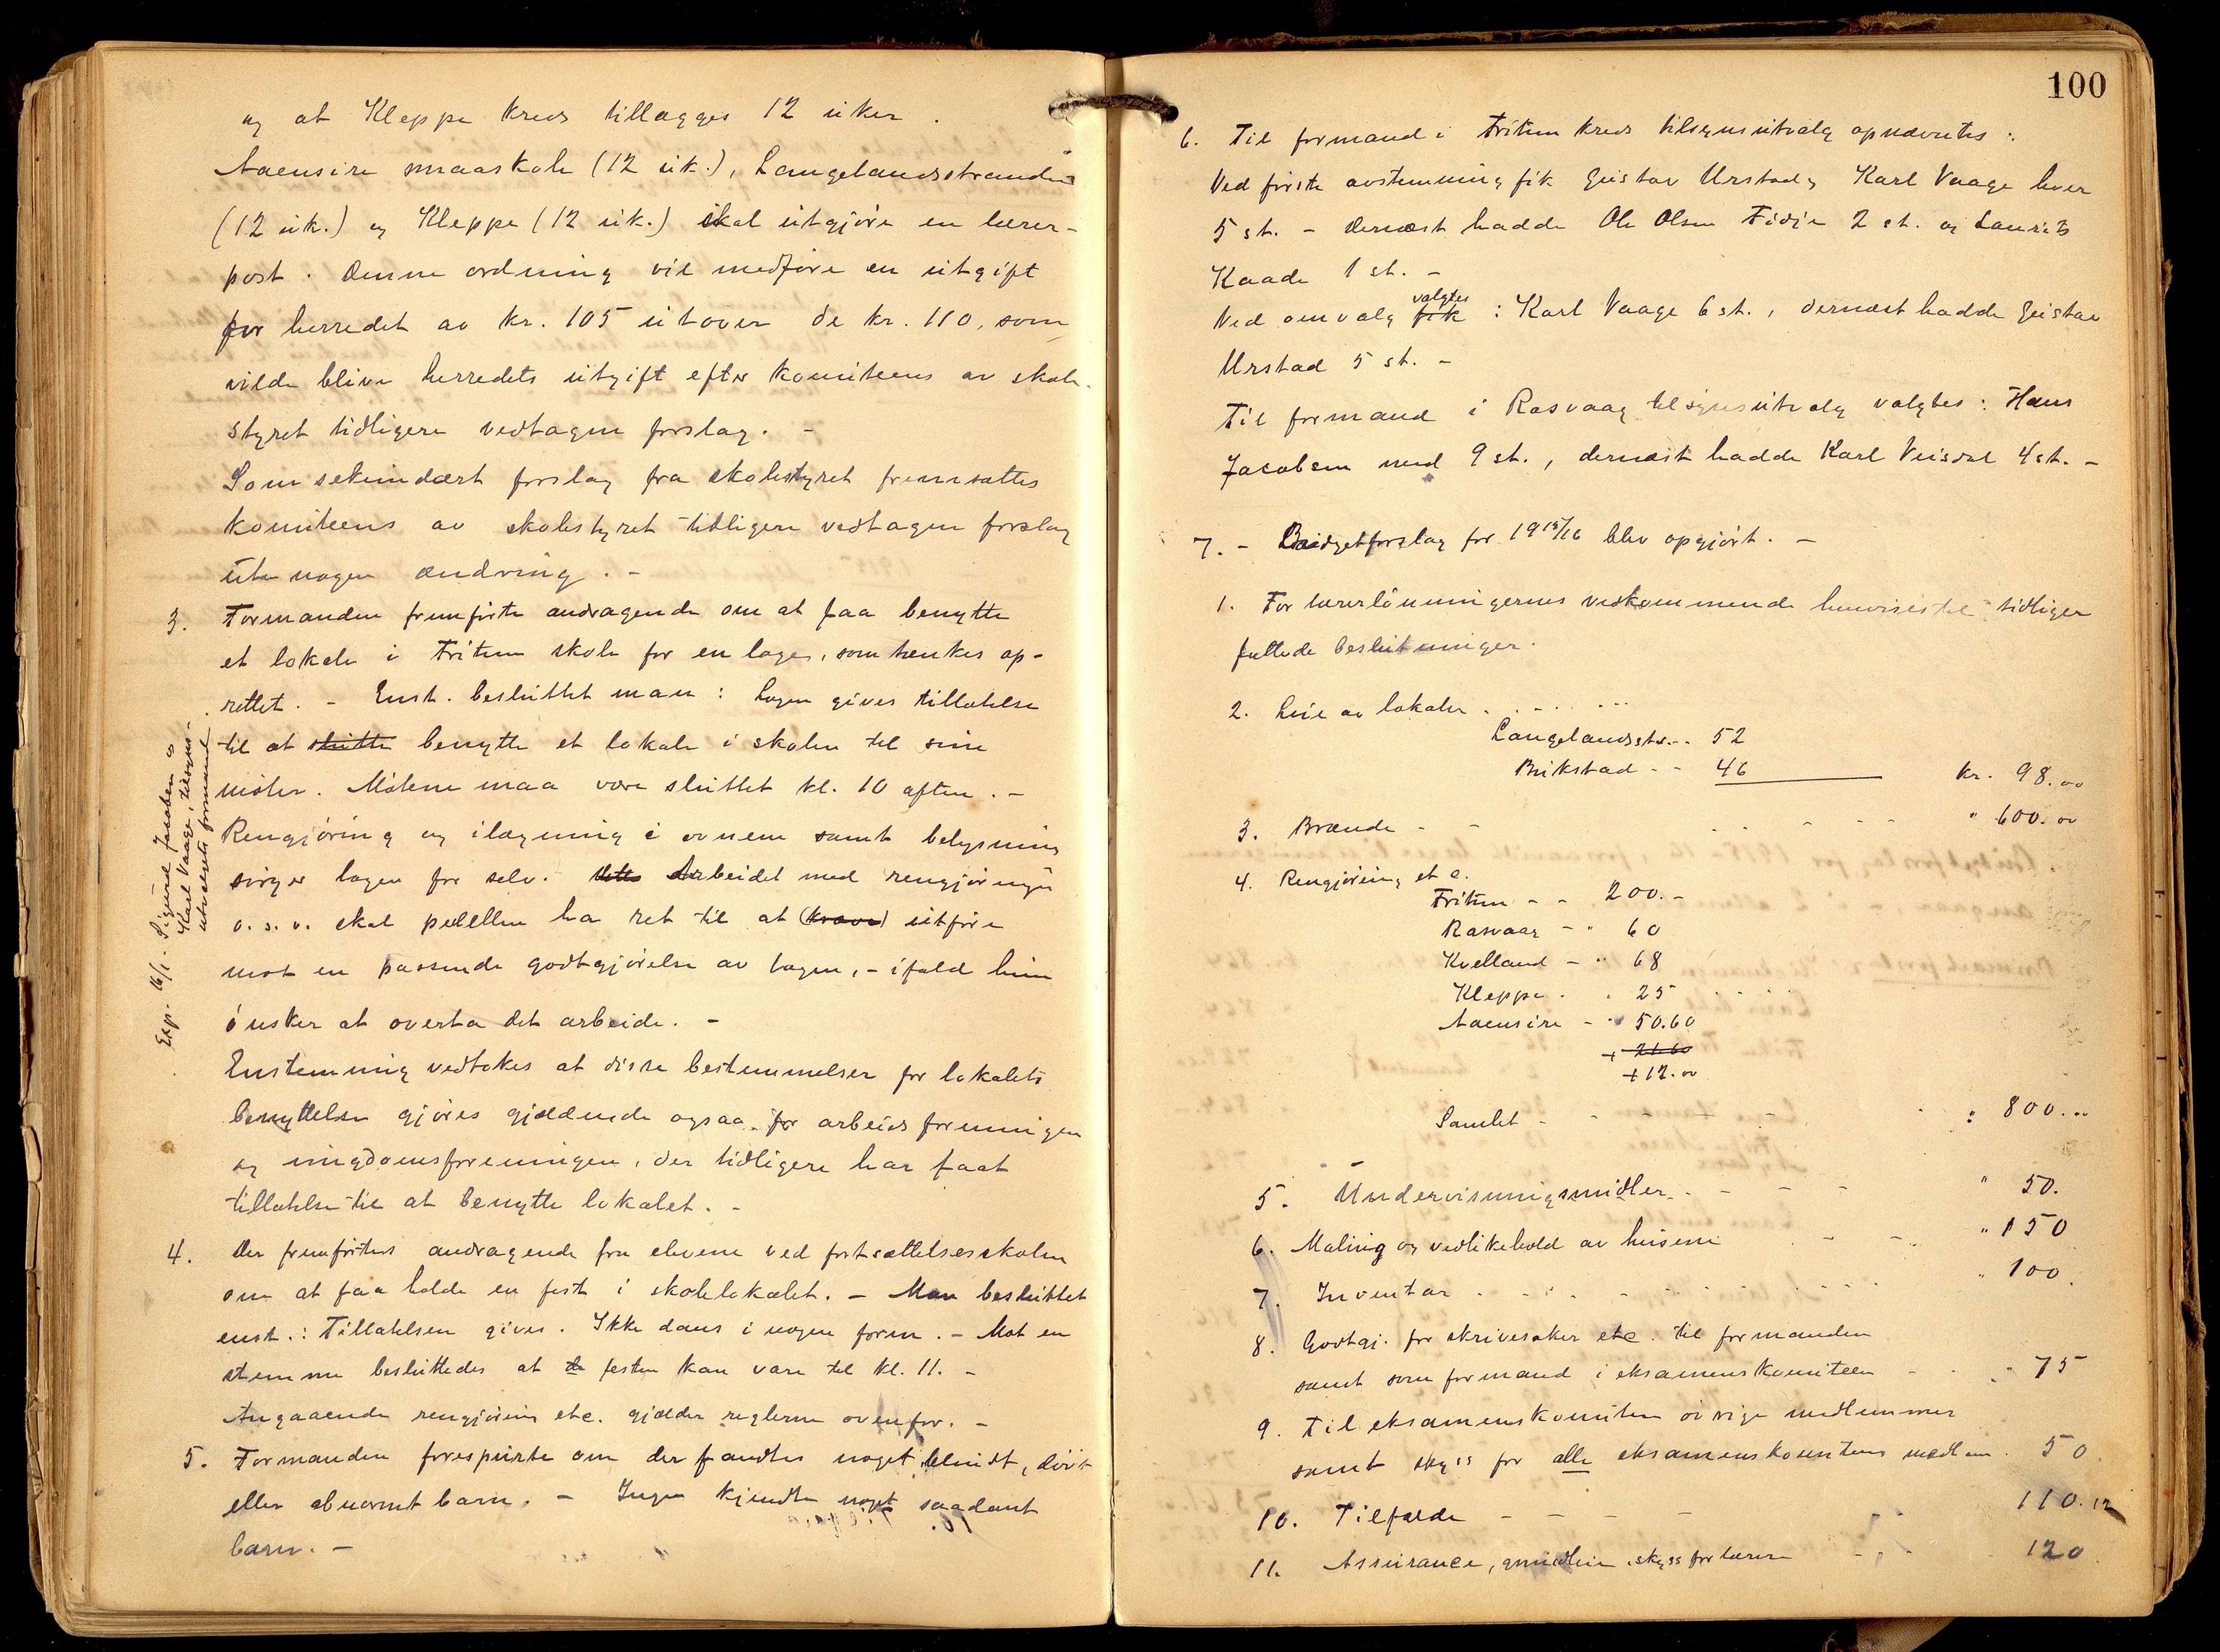 og at Kleppe kreds tillægges 12 uker.
Aaensire smaaskole (12 uk.), Langelandsstranden
(12 uk.) og Kleppe (12 uk.) skal utgjøre en lærer-
post. Denne ordning vil medføre en utgift
for herredet av kr. 105 utover de kr. 110, som
vilde blive herredets utgift efter komiteens av skole-
styret tidligere vedtagne forslag. -
Som sekundært forslag fra skolestyret fremsattes
komiteens av skolestyret tidligere vedtagne forslag
uten nogen ændring. -
3. Formanden fremførte andragende om at faa benytte
et lokale i Fritum skole for en loge, som tænkes op-
rettet. - Enst. besluttet man: Logen gives tillatelse
til at slutte benytte et lokale i skolen til sine
møter. Møtene maa være sluttet kl. 10 aften. -
Rengjøring og ilægning i ovnene samt belysning
sørger logen for selv. Dette Arbeidet med rengjøringen
o. s. v. skal pedellen ha ret til at (kræve) utføre
mot en passende godtgjørelse av logen, - ifald hun
ønsker at overta det arbeide. -
Enstemmig vedtokes at disse bestemmelser for lokalets
benyttelse gjøres gjældende ogsaa for arbeidsforeningen
og ungdomsforeningen, der tidligere har faat
tillatelse til at benytte lokalet. -
4. Der fremførtes andragende fra elevene ved fortsættelsesskolen
om at faa holde en fest i skolelokalet. - Man besluttet
enst.: Tillatelsen gives. Ikke dans i nogen form. - Mot en
stemme besluttedes at de festen kan vare til kl. 11. -
Angaaende rengjøring etc. gjælder reglerne ovenfor. -
5. Formanden forespurte om der fandtes noget blindt, døvt
eller abnormt barn. - Ingen kjendte noget saadant
barn. -
Exp. 16/1. Sigurd Jacobsen og
Karl Vaage, tilsyns-
utvalgets formand
100
6. Til formand i Fritum kreds tilsynsutvalg opnævntes:
Ved første avstemning fik Gustav Urstad og Karl Vaage hver
5 st. - dernæst hadde Ole Olsen Fidje 2 st. og Laurits
Kaade 1 st. -
valgtes
Ved omvalg fik : Karl Vaage 6 st., dernæst hadde Gustav
Urstad 5 st. -
Til formand i Rasvaag tilsynsutvalg valgtes: Hans
Jacobsen med 9 st., dernæst hadde Karl Veisdal 4 st. -
7. - Budgetforslag for 1915/16 blev opgjort. -
1. For lærerlønningernes vedkommende henvises til tidligere
fattede beslutninger.
2. Leie av lokaler . . . . .
Langelandsstr. - - 52
Birkstad - - 46 kr. 98.00
3. Brænde - - - - - " 600.00
4. Rengjøring etc.
Fritum - - 200. -
Rasvaag - " 60
Kvelland - " 68
Kleppe . . 25
Aaensire - " 50.60
+ 21.60
+ 12.00
Samlet - - - - " 800.00
5. Undervisningsmidler - - - " 50.
6. Maling og vedlikehold av husene - - " 150
7. Inventar - - - - - " 100.
8. Godtgj. for skrivesaker etc. til formanden
samt som formand i eksamenskomiteen - - " 75
9. Til eksamenskomiteen øvrige medlemmer
samt skyss for alle eksamenskomiteens medlem. 50.
10. Tilfælde - - - - 110.12
11. Assurance, skyss for lærere - - 120